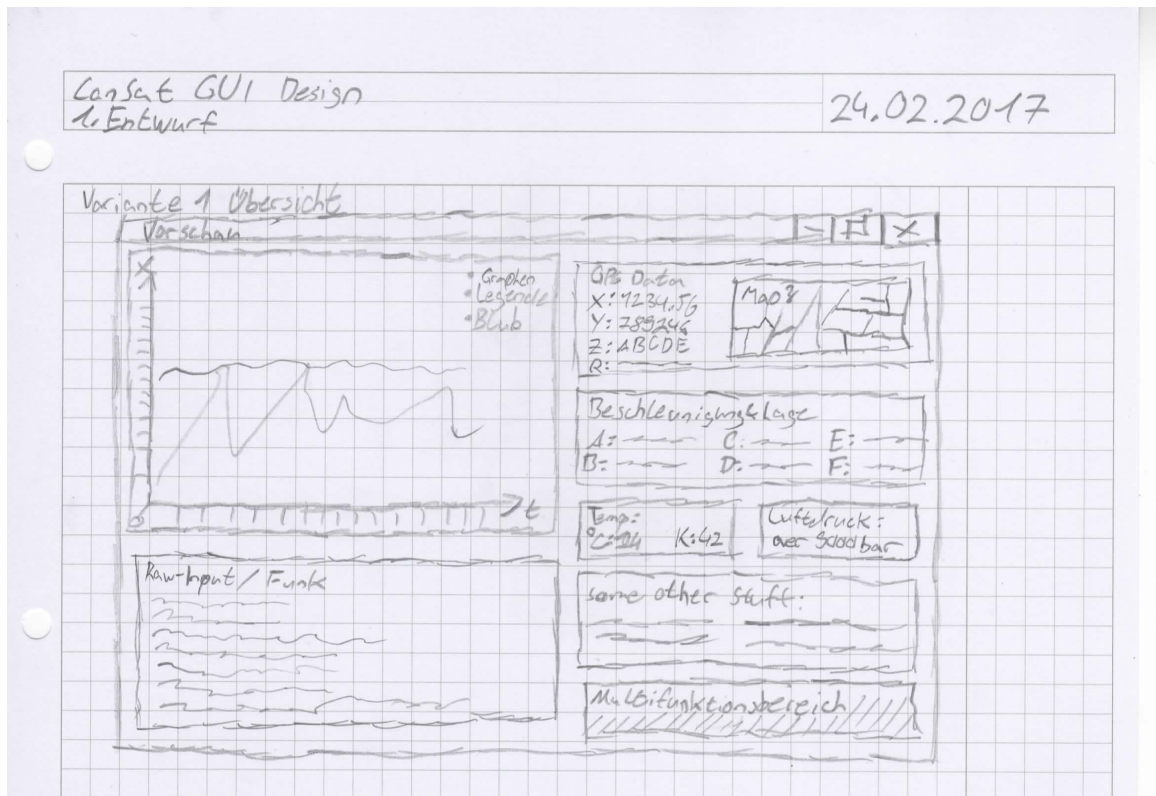 CanSat GUI Design
1. Entwurf
24.02.2017
Variante 1 Übersicht
Vorschau
- X
X
• Graphen
• Legende
• Blub
t
GPS Daten
X: 1234.56
Y: 789246
Z: ABCDE
R:
Map?
Beschleunigung & Lage
A: C: E:
B: D: F:
Temp:
°C: K: 42
Luftdruck:
over 9000 bar
Raw-Input / Funk
some other stuff:
Multifunktionsbereich